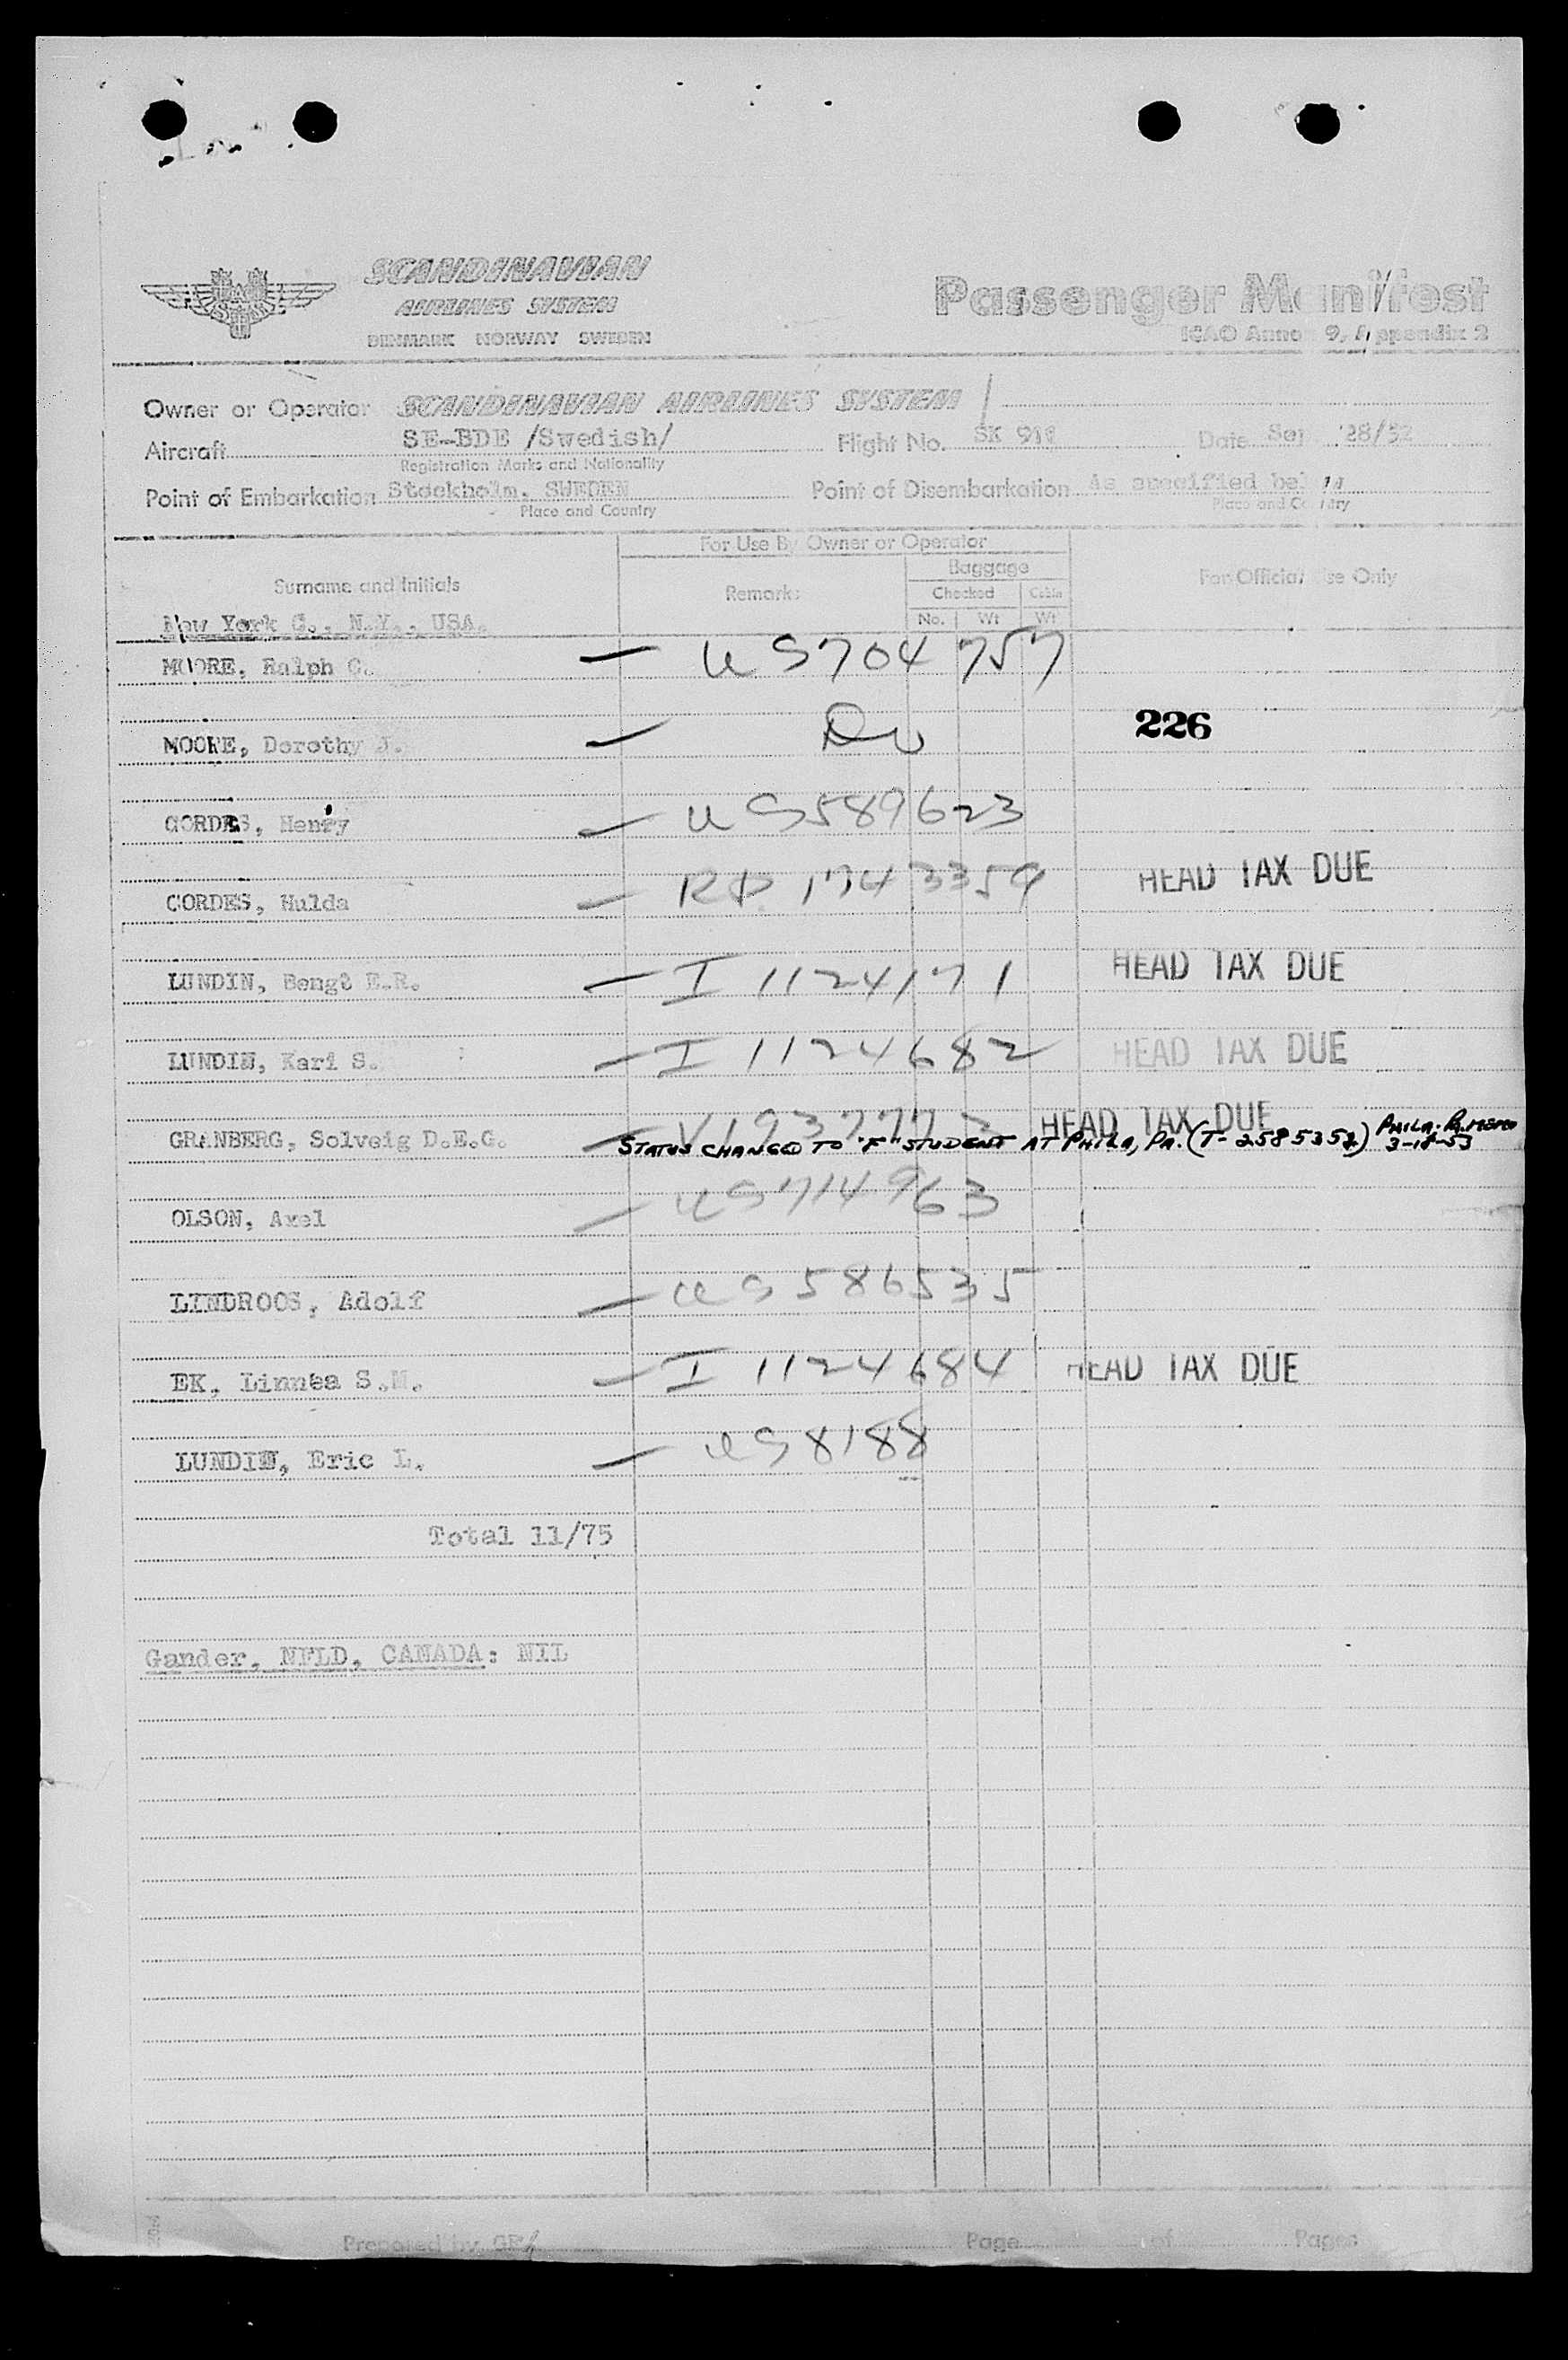 SCANDINAVIAN
AIRLINES SYSTEM
DENMARK NORWAY SWEDEN
Passenger Manifest
ICAO Annex 9, Appendix 2
Owner or Operator SCANDINAVIAN AIRLINES SYSTEM
Aircraft SE-BDE /Swedish/ Flight No. SK Date 28/52
Registration Marks and Nationality
Point of Embarkation Stockholm, SWEDEN Point of Disembarkation As specified
Place and Country Place and Country
For Use By Owner or Operator
Baggage
Surname and Initials Remarks Checked Cabin For Official Use Only
No. Wt Wt
New York C., N.Y., USA.
MOORE, Ralph C. — US704757
226
MOORE, Dorothy J. — Do
CORDES, Henry — US589623
CORDES, Hulda — RP. 1743359 HEAD TAX DUE
LUNDIN, Bengt E.R. — I 1124171 HEAD TAX DUE
LUNDIN, Kari S. — I 1124682 HEAD TAX DUE
GRANBERG, Solveig D.E.G. — V1937773 HEAD TAX DUE
STATUS CHANGED TO "F" STUDENT AT PHILA, PA. (T-2585357) PHILA. PA. MEMO 3-18-53
OLSON, Axel — US714963
LINDROOS, Adolf — US586535
EK, Linnea S.M. — I 1124684 HEAD TAX DUE
LUNDIN, Eric L. — US8188
Total 11/75
Gander, NFLD, CANADA: NIL
Prepared by Page of Pages